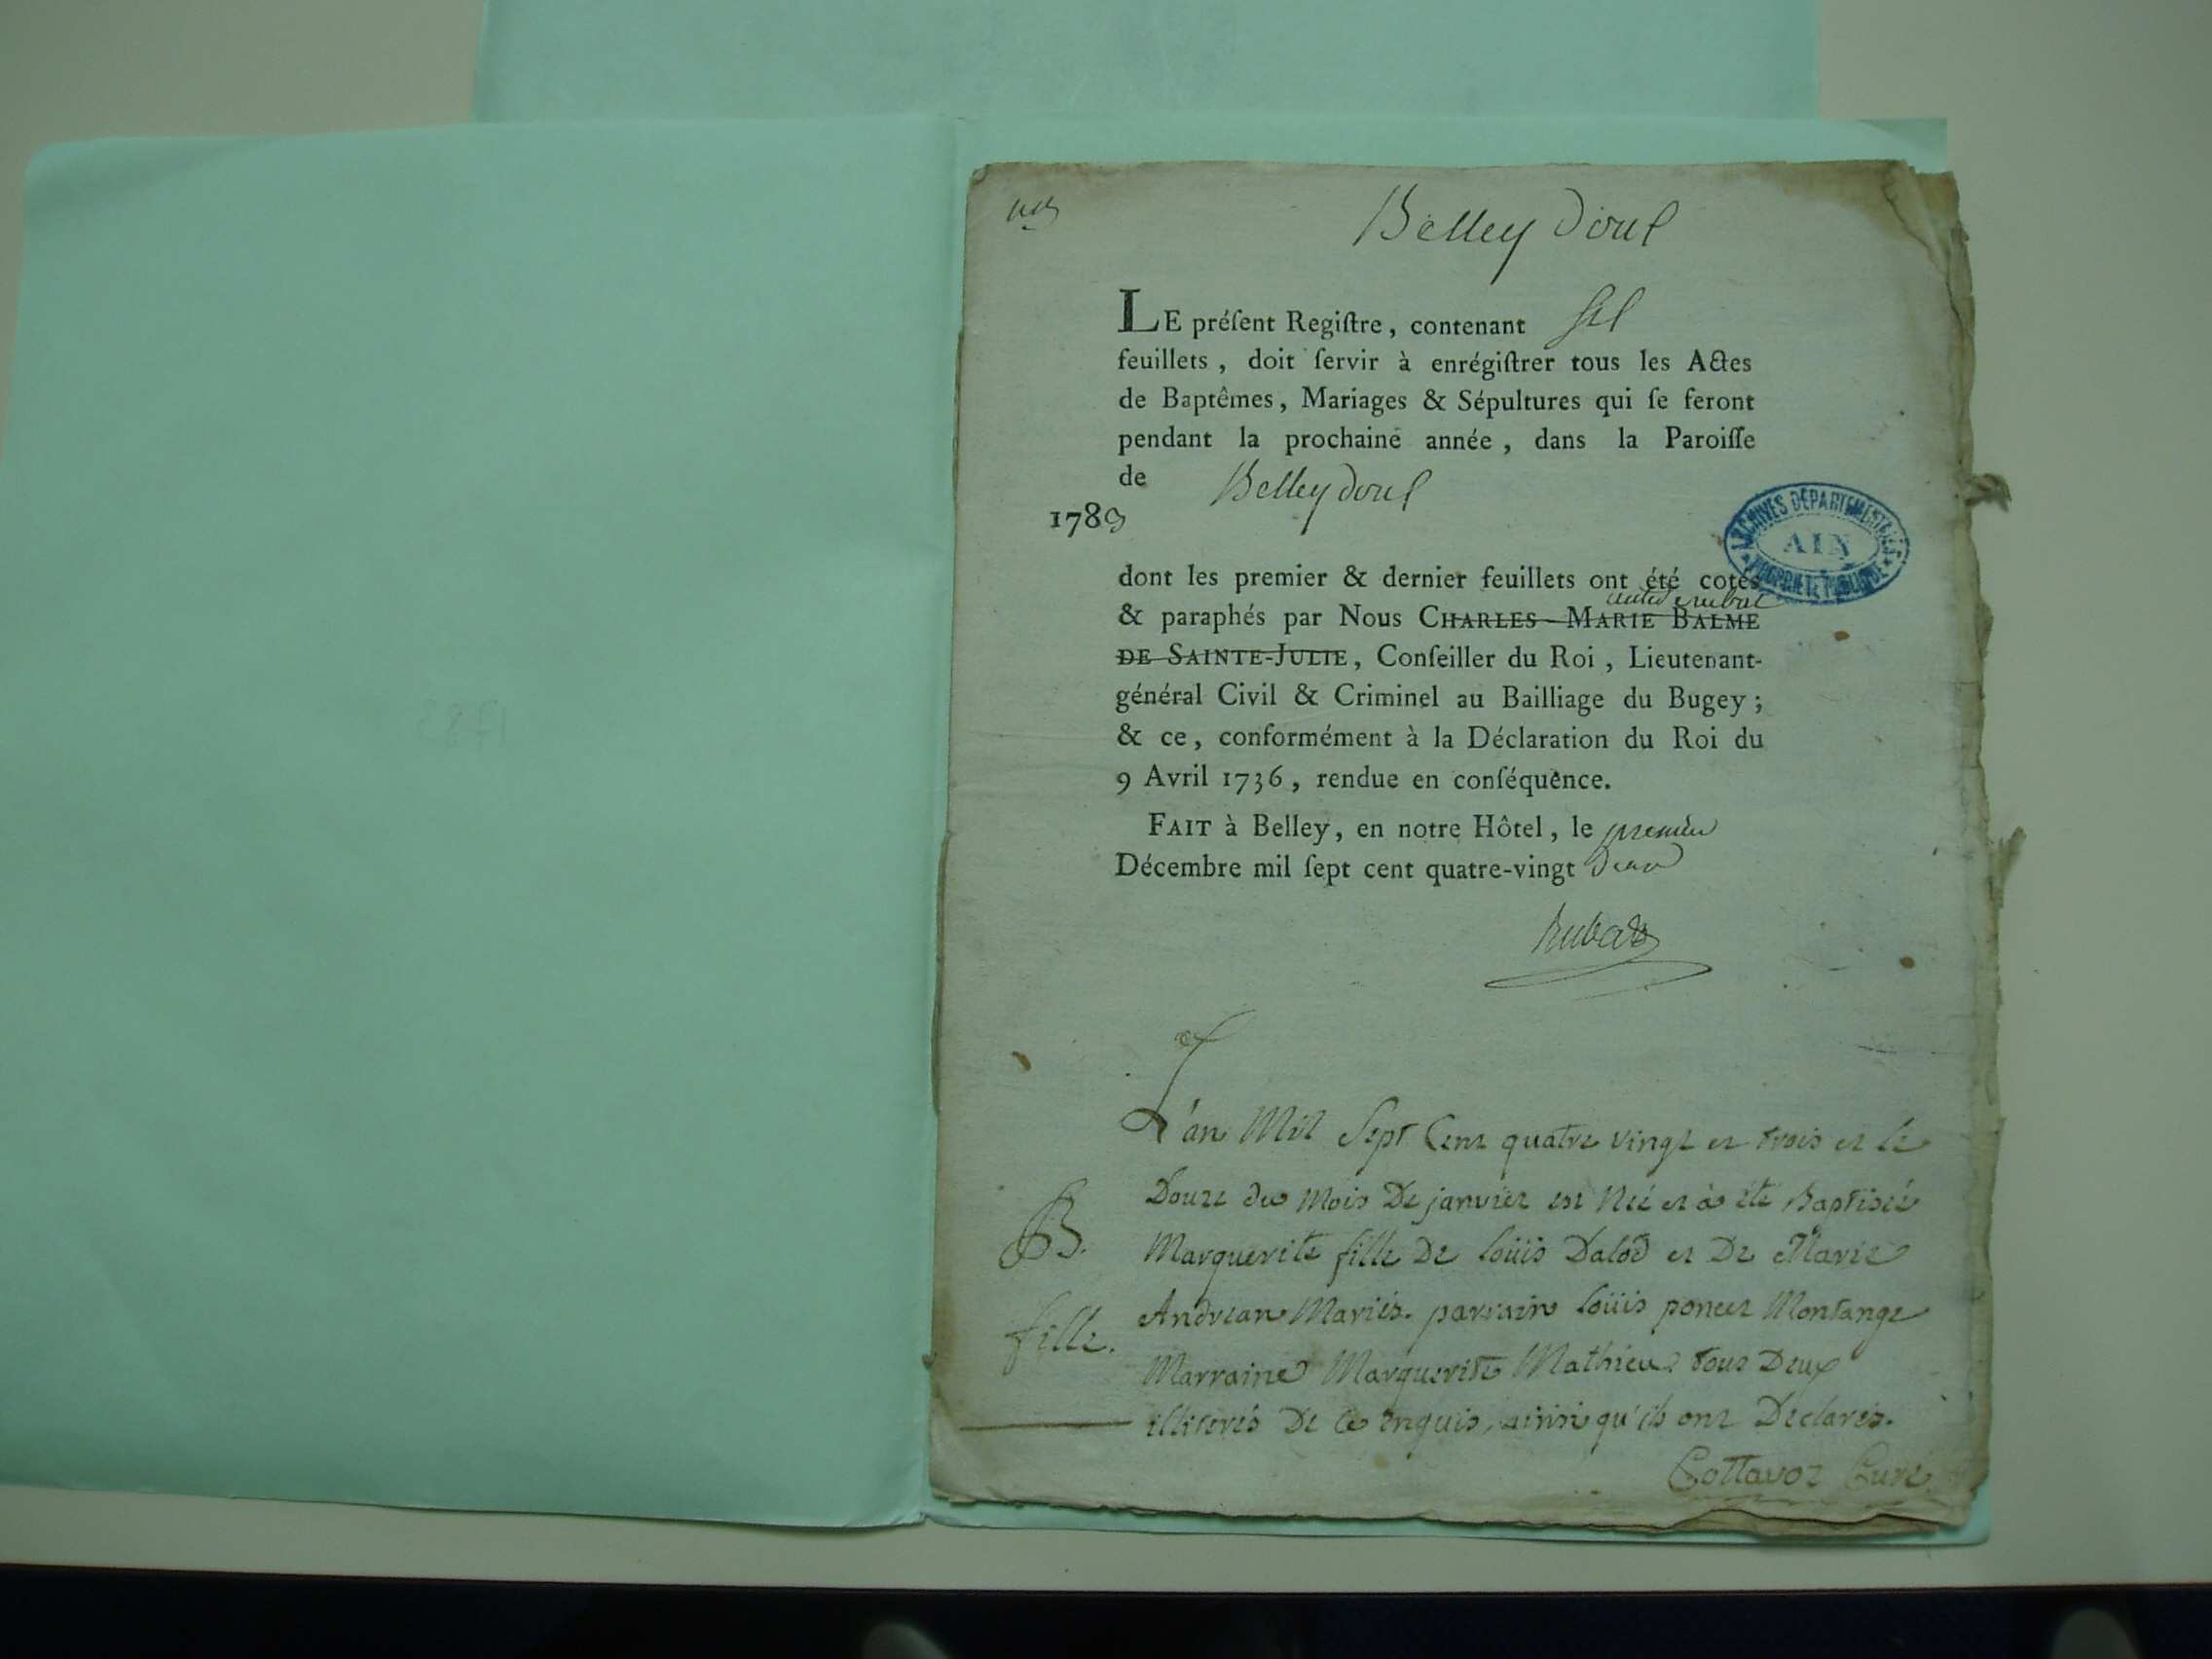 Belleydoux
LE préſent Regiſtre, contenant
feuillets, doit ſervir à enrégiſtrer tous les Actes
de Baptêmes, Mariages & Sépultures qui ſe feront
pendant la prochaine année, dans la Paroiſſe
de Belleydoux
1783
ARCHIVES DÉPARTEMENTALES
AIN
PROPRIÉTÉ PUBLIQUE
dont les premier & dernier feuillets ont été cotés
& paraphés par Nous CHARLES-MARIE BALME
DE SAINTE-JULIE, Conſeiller du Roi, Lieutenant-
général Civil & Criminel au Bailliage du Bugey;
& ce, conformément à la Déclaration du Roi du
9 Avril 1736, rendue en conſéquence.
FAIT à Belley, en notre Hôtel, le premier
Décembre mil ſept cent quatre-vingt deux
Rubat
L'an Mil Sept Cent quatre vingt et trois et le
Douze du Mois De janvier est Neé et à été Baptiseé
B. Marguerite fille De loüis Dalod et De Marie
Andrean Mariés. parrain loüis poncet Montange
fille. Marraine Marguerite Mathieu tous Deux
illiterés De ce enquis, ainsi qu'ils ont Declarés.
Cottavoz Curé.
1783